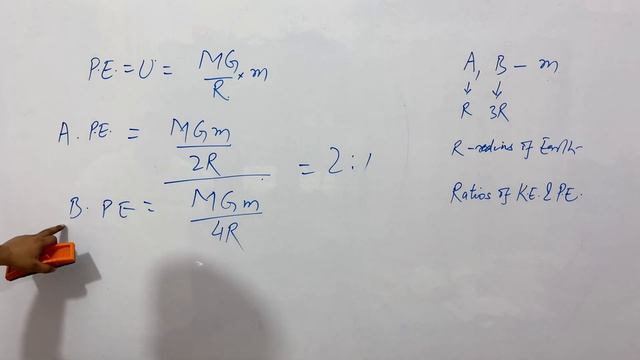 P.E. = U = MG/R × m
A. P.E. = MGm/2R
= 2:1
B. P E = MGm/4R
A, B - m
↓ ↓
R 3R
R - radius of Earth
Ratios of KE & PE.